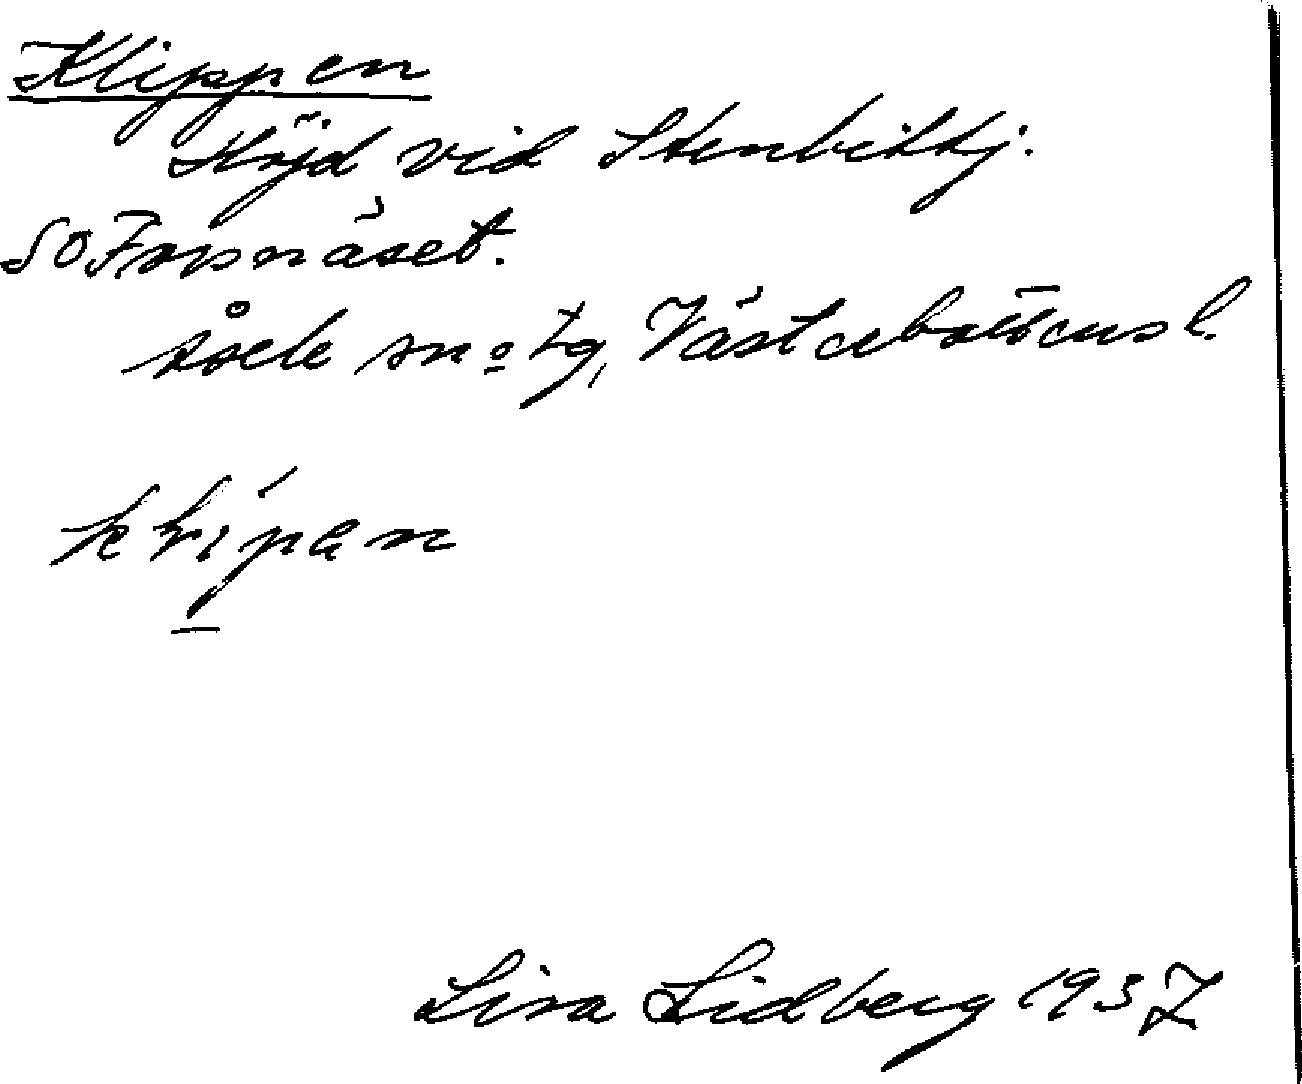 Klippen
Höjd vid Stenbittj.
SO Forsnäset.
Åsele sn o tg, Västerbottens l.
klipan
Lisa Lidberg 1937